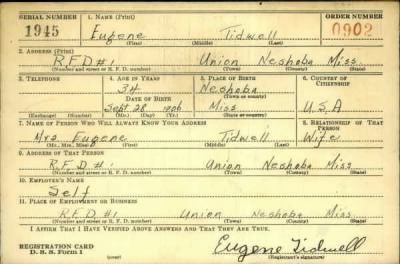 SERIAL NUMBER 1. NAME (Print) ORDER NUMBER
1945 Eugene Tidwell 0902
(First) (Middle) (Last)
2. ADDRESS (Print)
R.F.D #1 Union Neshoba Miss.
(Number and street or R. F. D. number) (Town) (County) (State)
3. TELEPHONE 4. AGE IN YEARS 5. PLACE OF BIRTH 6. COUNTRY OF CITIZENSHIP
34 Neshoba
DATE OF BIRTH (Town or county)
Sept 28 1906 Miss U.S.A
(Exchange) (Number) (Mo.) (Day) (Yr.) (State or country)
7. NAME OF PERSON WHO WILL ALWAYS KNOW YOUR ADDRESS 8. RELATIONSHIP OF THAT PERSON
Mrs Eugene Tidwell Wife
(Mr., Mrs., Miss) (First) (Middle) (Last)
9. ADDRESS OF THAT PERSON
R.F.D #1 Union Neshoba Miss
(Number and street or R. F. D. number) (Town) (County) (State)
10. EMPLOYER'S NAME
Self
11. PLACE OF EMPLOYMENT OR BUSINESS
R.F.D #1 Union Neshoba Miss
(Number and street or R. F. D. number) (Town) (County) (State)
I AFFIRM THAT I HAVE VERIFIED ABOVE ANSWERS AND THAT THEY ARE TRUE.
REGISTRATION CARD
D. S. S. Form 1 Eugene Tidwell
(Registrant's signature)